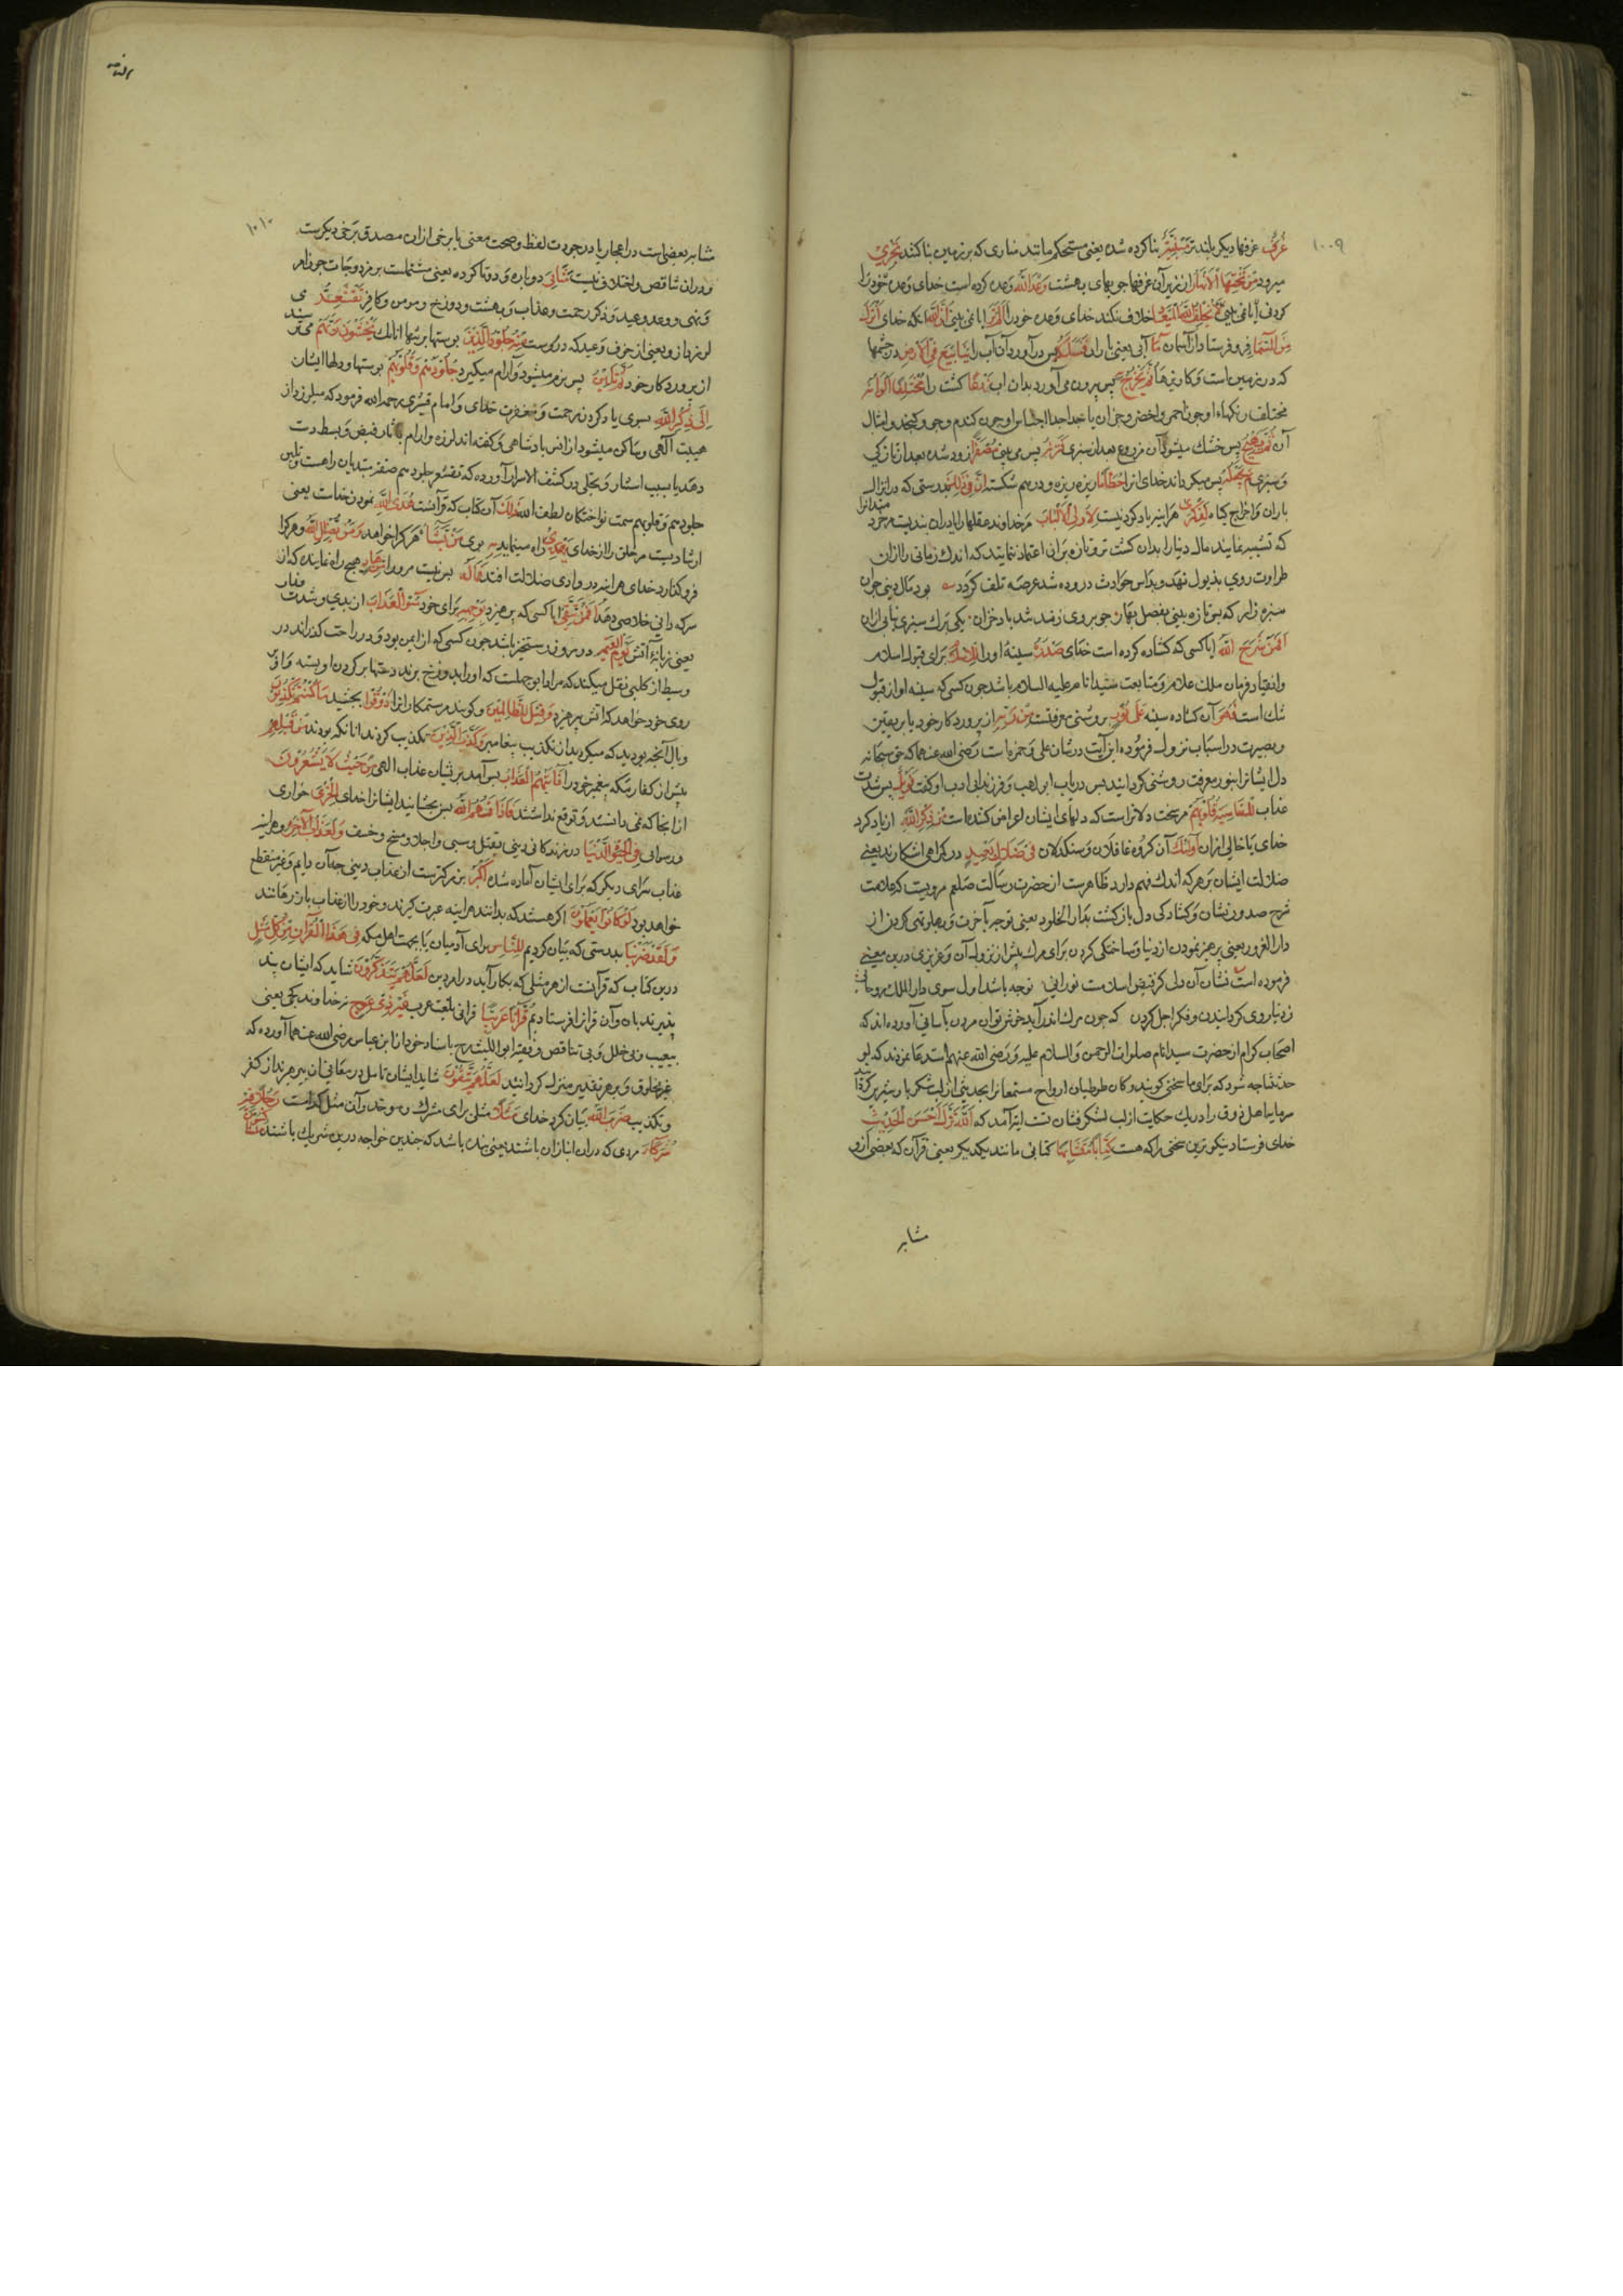 ١٠٠٩
غُرَفٌ غرفها دیکر بلندتر مَبْنِیَّةٌ بنا کرده شده یعنی مستحکم مانند بنای که بر زمین بنا کنند تَجْرِی
میرود مِنْ تَحْتِهَا الْاَنْهَارُ از زیر آن غرفها جویهای بهشت وَعْدَ اللهِ وعده کرده است خدای وعده خود را
لَا یُخْلِفُ اللهُ الْمِیعَادَ خلاف نکند خدای وعده خود را اَلَمْ تَرَ ایا نمی بینی اَنَّ اللهَ انکه خدای اَنْزَلَ
مِنَ السَّمَاءِ فرو فرستاد از آسمان مَاءً آبی یعنی باران فَسَلَکَهُ پس در آورد آن آب را یَنَابِیعَ فِی الْاَرْضِ در چشمها
که در زمین است و کاریزها ثُمَّ یُخْرِجُ بِهِ پس بیرون می آورد بدان اب زَرْعًا کشت را مُخْتَلِفًا اَلْوَانُهُ
مختلف رنکهاء او چون احمر و اخضر و جزان یا جدا جدا اجناس او چون کندم و جو و کنجد و امثال
آن ثُمَّ یَهِیجُ پس خشک میشود آن مزروع بعد از سبزی فَتَرَاهُ پس می بینی مُصْفَرًّا زرد شده بعد از تازکی
و سبزی ثُمَّ یَجْعَلُهُ پس میکرداند خدای انرا حُطَامًا ریزه ریزه و درهم شکسته اِنَّ فِی ذٰلِکَ بدرستی که در انزال
باران و اخراج کیاه لَذِکْرٰی هراینه یاد کردنیست لِاُولِی الْاَلْبَابِ مر خداوند عقلها را
که تشبیه نمایند مال دنیا را بدان کشت تر و تازه برانی اعتماد ننمایند که اندک زمانی را ازان
طراوت روی بذبول نهد و بداس حوادث دروده شد عرصه تلف کردد بود مال دنیی چو ان
سبزه زار که بس تازه بینی بفصل بهار چو بروی زند تند باد خزان یکی برک سبزی نیابی ازان
اَفَمَنْ شَرَحَ اللهُ ایا کسی که کشاده کرده است خدای صَدْرَهُ سینه او را لِلْاِسْلَامِ برای قبول اسلام
وانقیاد فرمان ملک علام و متابعت سید انام علیه السلام باشد چون کسی که سینه او از قبول
تنک است فَهُوَ آن کشاده سینه عَلٰی نُورٍ بر روشنی معرفتست مِنْ رَبِّهِ از پروردکار خود یا بر یقین
وبصیرت در اسباب نزول فرموده این آیت در شان علی و حمزه است رضی الله عنهما که حق سبحانه
دل ایشانرا بنور معرفت روشن کردانید پس در باب ابو لهب و فرزندان او کفت فَوَیْلٌ پس شدت
عذاب لِلْقَاسِیَةِ قُلُوبُهُمْ مر سخت دلانراست که دلهای ایشان اعراض کننده است مِنْ ذِکْرِ اللهِ از یاد کرد
خدای یا خالی ازان اُولٰئِکَ آن کروه غافلان و سنکدلان فِی ضَلَالٍ مُبِینٍ در کمراهی اشکارند یعنی
ضلالت ایشان بر هر که اندک فهم دارد ظاهرست از حضرت رسالت صلعم مرویست که علامت
شرح صدور نشان و کشادکی دل بازکشت بدار الخلود یعنی توجه بآخرت و پهلو تهی کردن از
دار الغرور یعنی پرهیز نمودن از دنیا و ساختکی کردن برای مرک پیش از نزول آن و عزیزی درین معنی
فرموده است نشان آن دلی کز فیض اسلامست نورانی توجه باشد اول سوی دار الملک روحانی
ز دنیا روی کردانیدن و فکر اجل کردن که چون مرک اندر آید خوش توان مردن بآسانی آورده اند که
اصحاب کرام از حضرت سید انام صلوات الرحمن والسلام علیه و رضی الله عنهم استدعا نمودند که لو
حدثتنا چه شود که برای ما سخنی کویند و کان طوطیان ارواح مستمعانرا بحدیثی از لب شکر بار شیرین کردان
سرمایه اهل ذوق را در یک حکایت از لب لشکر فشان تست ایت آمد که اَللهُ نَزَّلَ اَحْسَنَ الْحَدِیثِ
خدای فرستاد نیکوترین سخنی را که هست کِتَابًا مُتَشَابِهًا کتابی مانند یکدیکر یعنی قرآن که بعضی ازو
متشابه
١٠١٠
متشابه بعضی است در اعجاز یا در جودت لفظ و صحت معنی یا برخی ازان مصدق برخی دیکرست
ودران تناقض و اختلاف نیست مَثَانِیَ دوباره و دوتا کرده یعنی مشتملست بر مزدوجات چون امر
ونهی و وعد و وعید و ذکر رحمت و عذاب و بهشت و دوزخ و مومن و کافر تَقْشَعِرُّ می
لرزد ازو یعنی از خوف وعید که دروست مِنْهُ جُلُودُ الَّذِینَ پوستها بر تنهاء انانکه یَخْشَوْنَ رَبَّهُمْ می ترسند
از پروردکار خود ثُمَّ تَلِینُ پس نرم میشود و آرام میکیرد جُلُودُهُمْ وَقُلُوبُهُمْ پوستها و دلهاء ایشان
اِلٰی ذِکْرِ اللهِ بسوی یاد کردن رحمت و مغفرت خدای و امام قشیری رحمه الله فرمود که میلرزد از
هیبت آلهی و ساکن میشود از انس پادشاهی و کفته اند لرزه وارام بآثار قبض و بسط دست
دهد یا بسبب استتار و تجلی در کشف الاسرار آورده که تقشعر جلودهم صفت مبتدیان راهست و تلین
جلودهم و قلوبهم سمت نواختکان لطف الله ذٰلِکَ آن کتاب که قرآنست هُدَی اللهِ نمودن خداست یعنی
ارشادیست مر خلق را از خدای یَهْدِی راه مینماید بِهِ بوی مَنْ یَشَاءُ هر کرا خواهد وَمَنْ یُضْلِلِ اللهُ و هر کرا
فرو کذارد خدای هراینه در وادی ضلالت افتد فَمَا لَهُ پس نیست مرورا مِنْ هَادٍ هیچ راه نماینده که از
سرکردانی خلاصی دهد اَفَمَنْ یَتَّقِی ایا کسی که بپرهیزد بِوَجْهِهِ برای خود سُوءَ الْعَذَابِ از بدی و شدت عذاب
یعنی زبانهٔ آتش یَوْمَ الْقِیٰمَةِ در روز رستخیز باشد چون کسی که ازو ایمن بود و در راحت کذراند در
وسیط از کلبی نقل میکند که مراد ابوجهلست که او را بدوزخ برند دستها بر کردن او بسته
روی خود خواهد که آتش بپرهیزد وَقِیلَ لِلظَّالِمِینَ و کویند مر ستمکارانرا ذُوقُوا بچشید مَا کُنْتُمْ تَکْسِبُونَ
وبال آنچه بودید که میکردید از تکذیب پیغامبر کَذَّبَ الَّذِینَ تکذیب کردند انانکه بودند مِنْ قَبْلِهِمْ
پیش از کفار مکه پیغمبر خود را فَاَتٰیهُمُ الْعَذَابُ پس آمد بر ایشان عذاب الهی مِنْ حَیْثُ لَا یَشْعُرُونَ
از انجا که نمی دانستند و توقع نداشتند فَاَذَاقَهُمُ اللهُ پس بچشانید ایشانرا خدای الْخِزْیَ خواری
ورسوایی فِی الْحَیٰوةِ الدُّنْیَا در زندکانی دنیی بقتل و سبی و اجلا و مسخ و خسف وَلَعَذَابُ الْاٰخِرَةِ و هراینه
عذاب سرای دیکر که برای ایشان آماده شده اَکْبَرُ بزرکترست از عذاب دنیی چه آن دایم و غیر منقطع
خواهد بود لَوْ کَانُوا یَعْلَمُونَ اکر هستند که بدانند هراینه عبرت کیرند و خود را از عذاب باز رهانند
وَلَقَدْ ضَرَبْنَا بدرستی که بیان کردیم لِلنَّاسِ برای آدمیان یا بجهت اهل مکه فِی هٰذَا الْقُرْآنِ مِنْ کُلِّ مَثَلٍ
درین کتاب که قرآنست از هر مثلی که بکار آید در امر دین لَعَلَّهُمْ یَتَذَکَّرُونَ شاید که ایشان پند
پذیرند بان و آن قرآنرا فرستادیم قُرْآنًا عَرَبِیًّا قرانی بلغت عرب غَیْرَ ذِی عِوَجٍ نه خداوند کجی یعنی
بیعیب و بی خلل و بی تناقض و فقیه ابو اللیث رح باسناد خود از ابن عباس رضی الله عنهما آورده که
غیر مخلوق و بر هر تقدیر منزل کردانیدند لَعَلَّهُمْ یَتَّقُونَ شاید ایشان تامل در معانی ان بپرهیزند از کفر
وتکذیب ضَرَبَ اللهُ بیان کرد خدای مَثَلًا مثلی برای مشرک و موحد و آن مثل کدامست رَجُلًا فِیهِ
شُرَکَاءُ مردی که دران انبازان باشند یعنی بنده باشد که چندین خواجه درین شریک باشند